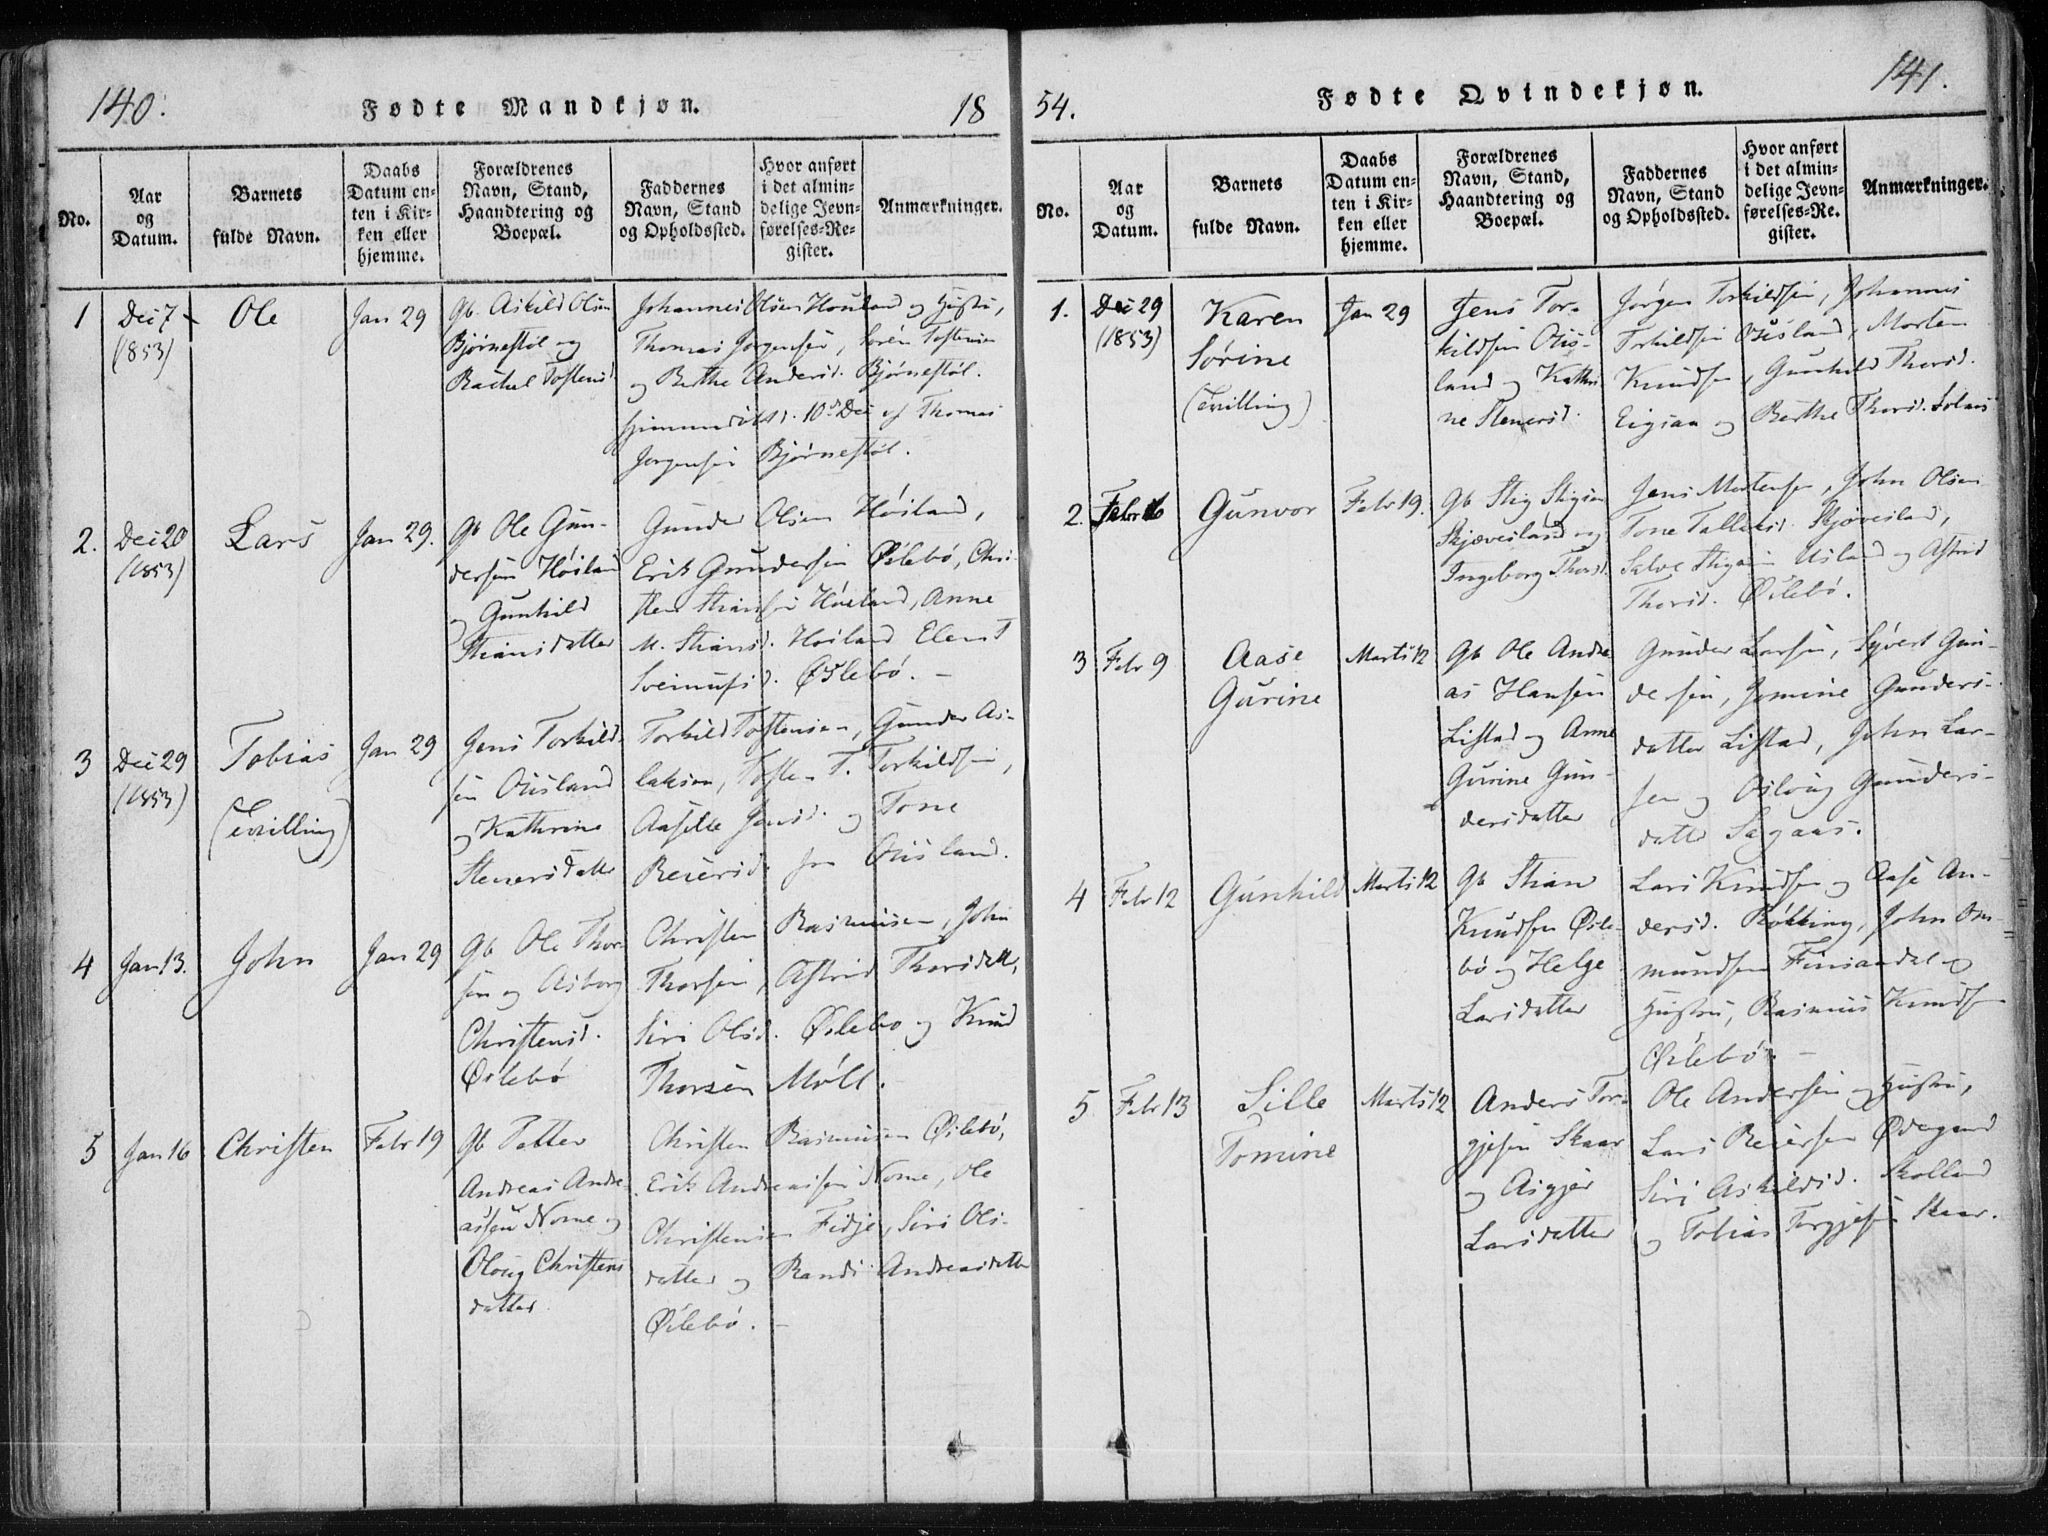 140.
Fødte Mandkjøn.
18
No.
Aar
og
Datum.
Barnets
fulde Navn.
Daabs
Datum en-
ten i Kir-
ken eller
hjemme.
Forældrenes
Navn, Stand,
Haandtering og
Boepæl.
Faddernes
Navn, Stand
og Opholdssted.
Hvor anført
i det almin-
delige Jevn-
førelses-Re-
gister.
Anmærkninger.
1
Dec 7
(1853)
Ole
Jan 29
Gb. Askild Olsen
Bjørnestøl og
Rachel Tostensd.
Johannes Olsen Houland og Hustru,
Thomas Jørgensen, Søren Tostensen
og Berthe Andersd. Bjørnestøl.
hjemmedøbt d. 10d Dec af Thomas
Jørgensen Bjørnestøl.
2.
Dec 20
(1853)
Lars
Jan 29.
Gb Ole Gun-
dersen Høiland
og Gunhild
Stiansdatter
Gunder Olsen Høiland,
Erik Gundersen Øslebø, Chri-
sten Stiansen Høiland, Anne
M. Stiansd. Høiland Elen T
Øslebø.
3
Dec 29
(1853)
Tobias
(Tvilling)
Jan 29
Jens Torkild-
sen Ousland
og Kathrine
Stenersdatter
Torkild Tostensen, Gunder As-
laksen, Tosten T. Torkildsen,
Jensd. og Tone
Reiersd. fra Ousland.
4
Jan 13.
John
Jan 29
Gb Ole Thor-
sen og Asborg
Christensd.
Øslebø
Christen Rasmussen, John
Thorsen, Astrid Thorsdatt,
Siri Olsd. Øslebø og Knud
Thorsen Møll.
5
Jan 16
Christen
Febr 19
Gb Petter
Andreas Andre-
assen Nome og
Oloug Christens
datter
Christen Rasmussen Øslebø,
Erik Andreassen Nome, Ole
Christensen Fidje, Siri Ols-
datter og Randi Andreasdatter
Øslebø.
54.
Fødte Qvindekjøn.
141.
No.
Aar
og
Datum.
Barnets
fulde Navn.
Daabs
Datum en-
ten i Kir-
ken eller
hjemme.
Forældrenes
Navn, Stand,
Haandtering og
Boepæl.
Faddernes
Navn, Stand
og Opholdssted.
Hvor anført
i det almin-
delige Jevn-
førelses-Re-
gister.
Anmærkninger.
1.
Dec 29
(1853)
Karen
Sørine
(Tvilling)
Jan 29
Jens Tor-
kildsen Ous-
land og Kathri-
ne Stenersd.
Jørgen Torkildsen, Johannes
Torkildsen Ousland, Morten
Knudsen, Gunhild Thorsd.
Eigsaa og Berthe Thorsd.
2.
Febr 6
Gunvor
Febr 19.
Gb Stig Stigsen
Skjæveslænd og
Ingeborg Thorsd.
Jens Mortensen, John Olsen
Tone Tallaksd. Skjævesland,
Salve Stigsen Usland og Astrid
Thorsd. Øslebø.
3
Febr 9
Aase
Gurine
Marts 12
Gb Ole Andre
as Hansen
Listad og Anne
Gurine Gun-
dersdatter
Gunder Larsen, Syvert Gun-
dersen, Jomine Gunders-
datter Listad, John Lar-
sen og Asloug Gunders-
datter Sagaas.
4
Febr 12
Gunhild
Marts 12
Gb Stian
Knudsen Øsle-
bø og Helge
Larsdatter
Lars Knudsen og Aase An-
dersd. Røkking, John Om-
mundsen Finsaadal og
Hustru, Rasmus Knudsen
Øslebø. –
5
Febr 13
Sille
Tomine
Marts 12
Anders Tor-
gjesen Skaar
og Asgjer
Larsdatter
Ole Andersen og Hustru,
Lars Reiersen Ødegaard
Siri Askildsd. Skolland
og Tobias Torgjesen Skaar.